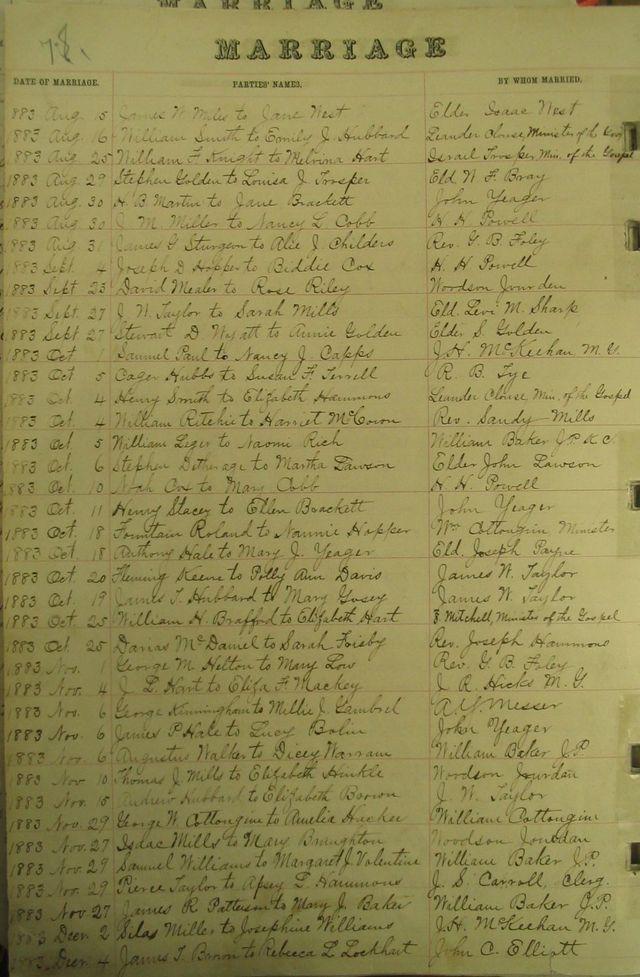 MARRIAGE
78.
MARRIAGE
DATE OF MARRIAGE. PARTIES' NAMES, BY WHOM MARRIED.
1883 Aug. 15 James W. Mills to Jane West Elder Isaac West
1883 Aug. 16 William Smith to Emily J. Hubbard Leander Clouse, Minister of the
1883 Aug. 25 William F. Knight to Melvina Hart Israel Trosper Min. of the Gospel
1883 Aug. 29 Stephen Golden to Louisa J. Trosper Eld W. F. Bray
1883 Aug. 30 H. B. Martin to Jane Brackett John Yeager
1883 Aug. 30 J. M. Miller to Nancy L. Cobb H. H. Powell
1883 Aug. 31 James G. Sturgeon to Alie J. Childers Rev. G. B. Foley
1883 Sept. 4 Joseph D. Hopper to Biddie Cox H. H. Powell
1883 Sept 23 David Mealer to Rose Riley Woodson Jourden
1883 Sept. 27 J. W. Taylor to Sarah Mills Eld. Levi M. Sharp
1883 Sept 27 Stewart D. Wyatt to Annie Golden Elder S. Golden
1883 Oct. 1 Samuel Paul to Nancy J. Capps J. H. McKeehan, M. G.
1883 Oct 5 Cager Hubbs to Susan F. Terrell R. B. Tye
1883 Oct. 4 Henry Smith to Elizabeth Hammons Leander Clouse, Min. of the Gospel
1883 Oct. 4 William Ritchie to Harriet McCown Rev. Sandy Mills
1883 Oct. 5 William Liger to Naomi Rich William Baker J. P. K. C.
1883 Oct. 6 Stephen Detherage to Martha Lawson Elder John Lawson
1883 Oct. 10 Noah Cox to Mary Cobb H. H. Powell
1883 Oct. 11 Henry Stacey to Ellen Brackett John Yeager
1883 Oct. 18 Fountain Roland to Nannie Hopper Wm Cottongin Minister
1883 Oct. 18 Anthony Hale to Mary J. Yeager Eld. Joseph Payne
1883 Oct. 20 Fleming Keene to Polly Ann Davis James W. Taylor
1883 Oct. 19 James T. Hubbard to Mary Gusey James W. Taylor
1883 Oct. 25 William H. Brafford to Elizabeth Hart Mitchell, Minister of the Gospel
1883 Oct. 25 Darias McDaniel to Sarah Frisby Rev. Joseph Hammons
1883 Nov. 1 George M. Helton to Mary Low Rev. G. B. Foley
1883 Nov. 4 J. L. Hart to Eliza F. Mackey J. R. Hicks M. G.
1883 Nov. 6 George Kinningham to Millie J. Gambrel Messer
1883 Nov. 6 James P. Hale to Lucy Bolin John Yeager
1883 Nov. 6 Augustus Walker to Dicey Warram William Baker J. P.
1883 Nov 10 Thomas J. Mills to Elizabeth Hinkle Woodson Jourdan
1883 Nov. 15 Andrew Hubbard to Elizabeth Brown J. W. Taylor
1883 Nov. 29 George W. Cottongine to Amelia Hacker William Cottongim
1883 Nov. 27 Isaac Mills to Mary Broughton Woodson Jourdan
1883 Nov. 29 Samuel Williams to Margaret J. Valentine William Baker J. P.
1883 Nov. 29 Pierce Taylor to Apsey L. Hammons J. S. Carroll, Clerg.
1883 Nov 27 James R. Patterson to Mary J. Baker William Baker J. P.
1883 Decr. 2 Silas Miller to Josephine Williams J. H. McKeehan M. G.
1883 Decr. 4 James T. Brown to Rebecca L. Lockhart John C. Elliott